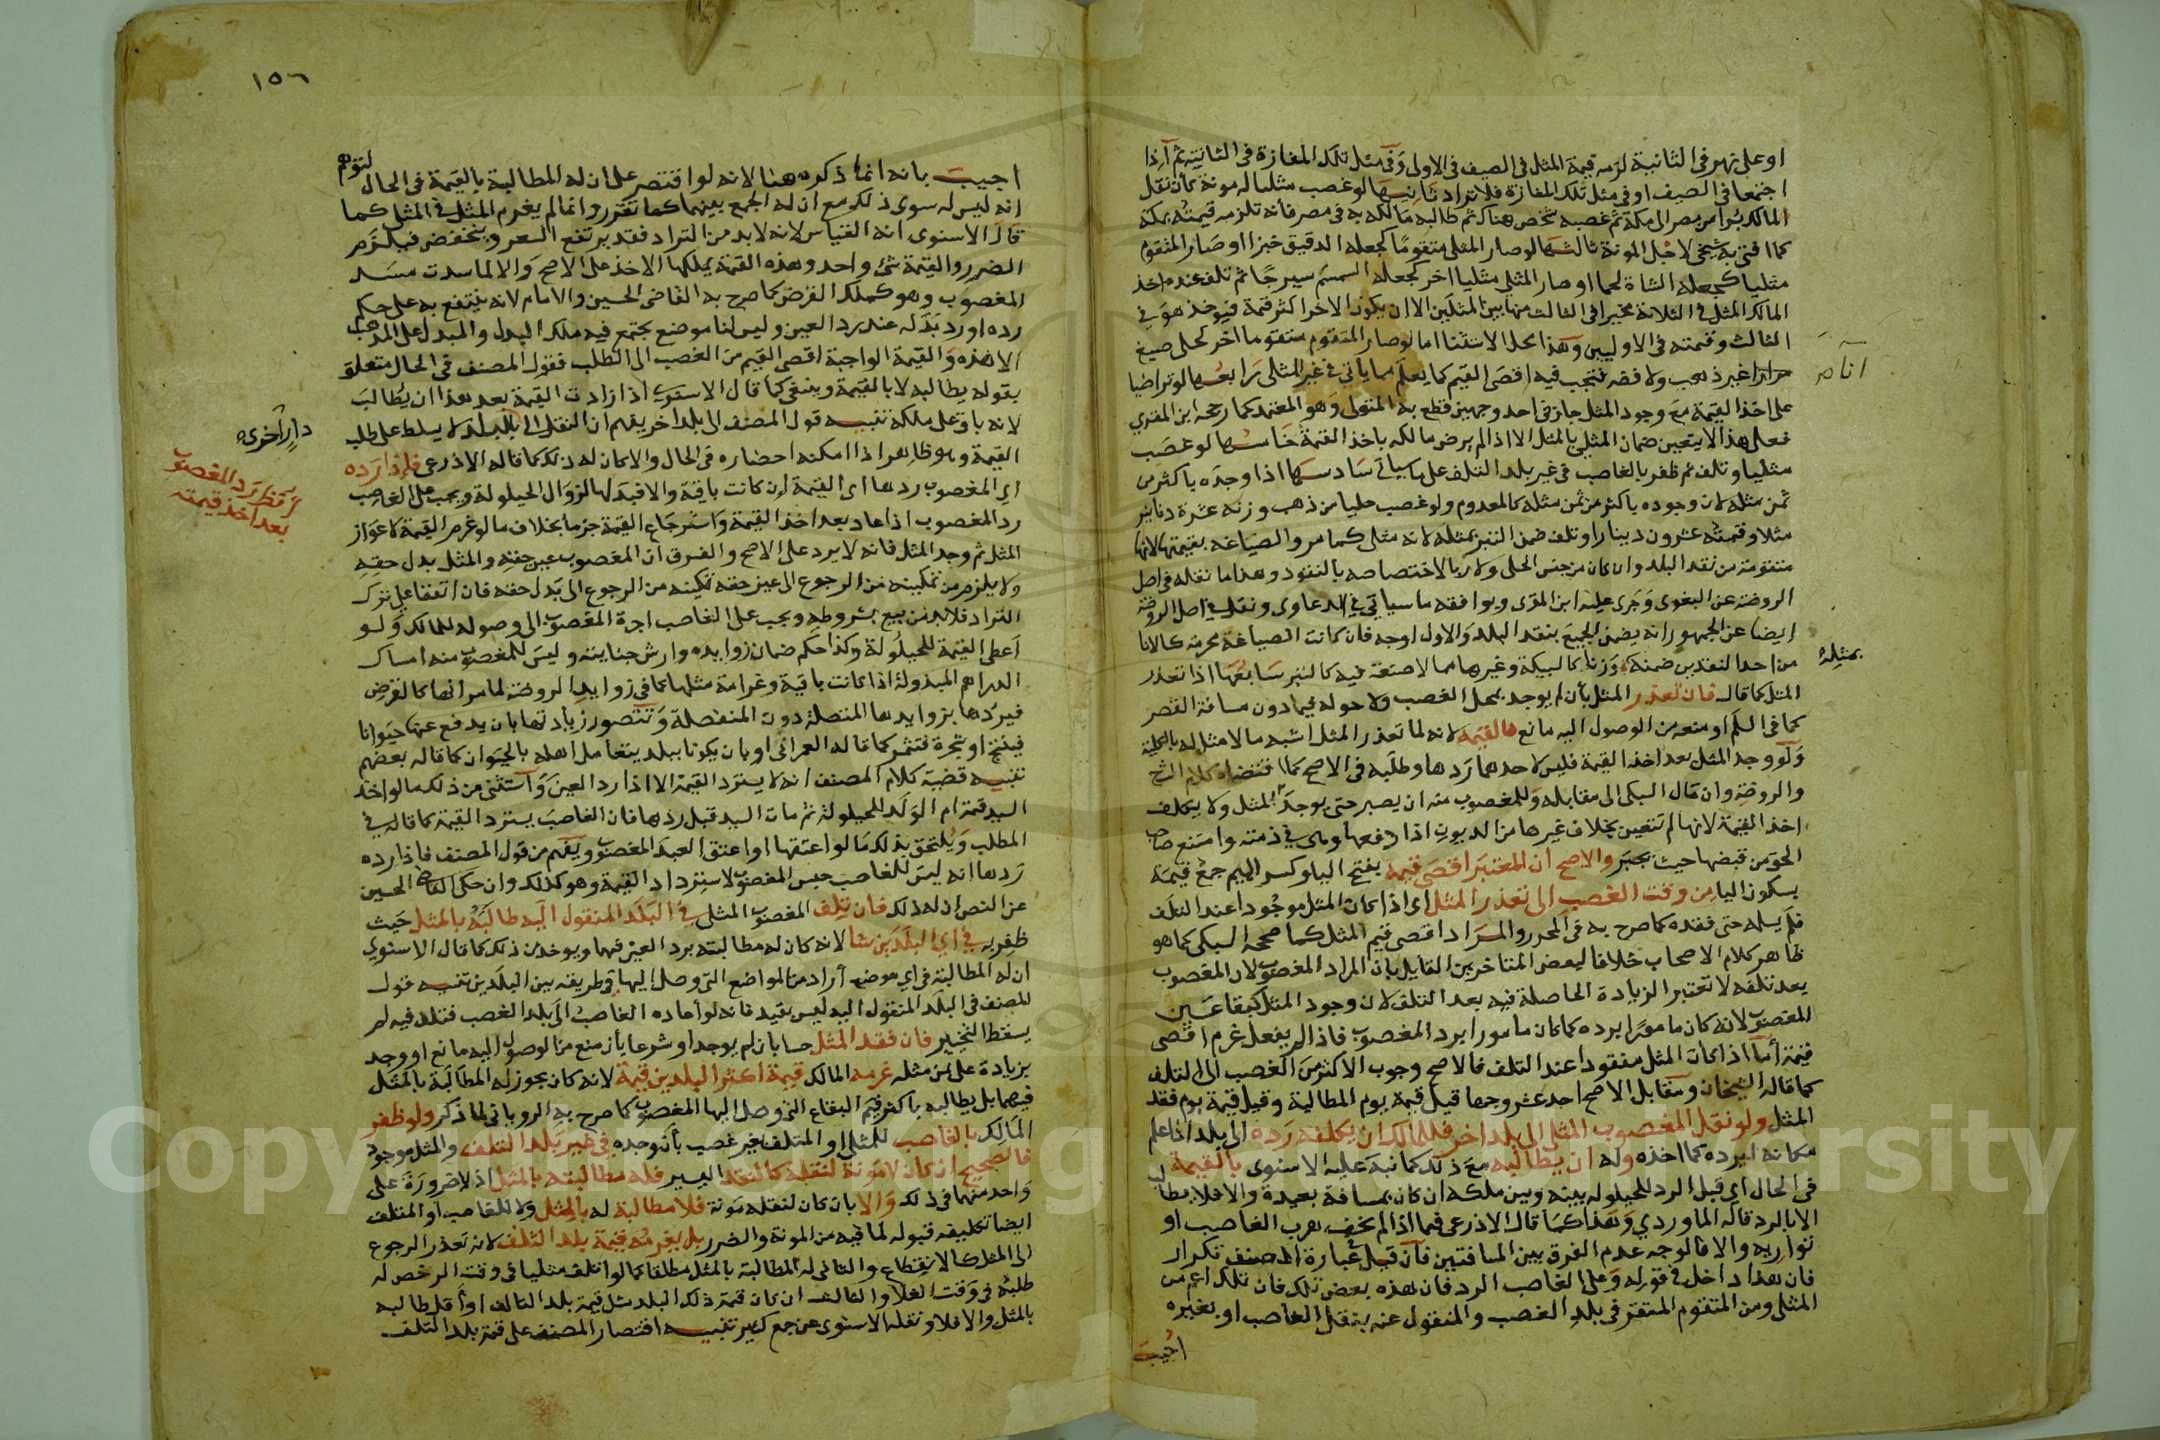 او على نهر في الثانية لزمه قيمة المثل في الصيف في الاولى وفي مثل تلك المفازة في الثانية ثم اذا
اجتمعا في الصيف او في مثل تلك المفازة فلا تراد ثانيها لو غصب مثليا له مونة كان نقل
المالك برا من مصر الى مكة ثم غصبه شخص هناك ثم طالبه مالكه به في مصر فانه تلزمه قيمته بمكة
كما افتى به شيخي لاجل المونة ثالثها لو صار المثلي متقوما كجعله الدقيق خبزا او صار المتقوم
مثليا كجعله الشاة لحما او صار المثلي مثليا اخر كجعله السمسم سيرجا ثم تلف عنده اخذ
المالك المثل في الثلاثة مخيرا في الثالث منها بين المثلين الا ان يكون الاخر اكثر قيمة فيوخذ هو في
الثالث وقيمته في الاوليين وهذا محل الاستثنا اما لو صار المتقوم متقوما اخر كحلي صيغ
غير ذهب ولا فضه فتجب فيه اقصى القيم كما يعلم مما ياتي في غير المثلي رابعها لو تراضيا
على اخذ القيمة مع وجود المثل جاز في احد وجهين قطع به المتولي وهو المعتمد كما رجحه ابن المقري
فعلى هذا لا يتعين ضمان المثلي بالمثل الا اذا لم يرض مالكه باخذ القيمة خامسها لو غصب
مثليا وتلف ثم ظفر بالغاصب في غير بلد التلف على ما سياتي سادسها اذا وجده باكثر من
ثمن مثله لان وجوده باكثر من ثمن مثله كالمعدوم ولو غصب حليا من ذهب وزنه عشرة دنانير
مثلا وقيمته عشرون دينارا وتلف ضمن التبر بمثله لانه مثلي كما مر والصياغه بقيمتها لانها
متقومة من نقد البلد وان كان من جنس الحلي ولا ربا لاختصاصه بالعقود وهذا ما نقله في اصل
الروضة عن البغوي وجرى عليه ابن المقري ويوافقه ما سياتي في الدعاوى ونقل في اصل الروضة
ايضا عن الجمهور انه يضمن الجميع بنقد البلد والاول اوجه فان كانت الصياغة محرمة كالانا
من احد النقدين ضمنه وزنا كالسبيكة وغيرها مما لا صنعة فيه كالتبر سابعها اذا تعذر
المثل كما قال فان تعذر المثل بان لم يوجد بمحل الغصب ولا حوله فيما دون مسافة القصر
كما في السلم او منعه من الوصول اليه مانع فالقيمة لانه لما تعذر المثل اشبه ما لا مثل له بالكلية
ولو وجد المثل بعد اخذ القيمة فليس لاحدهما ردها وطلبه في الاصح كما اقتضاه كلام الشرح
والروضة وان مال السبكي الى مقابله وللمغصوب منه ان يصبر حتى يوجد المثل ولا يكلف
اخذ القيمة لانها لم تتعين بخلاف غيرها من الديون اذا دفعها وهي في ذمته وامتنع صاحب
الحق من قبضها حيث يجبر والاصح ان المعتبر اقصى قيمة بفتح اليا وكسر الميم جمع قيمة
بسكون اليا من وقت الغصب الى تعذر المثل اي اذا كان المثل موجودا عند التلف
فلم يسلمه حتى فقده كما صرح به في المحرر والمراد اقصى قيم المثل كما صححه السبكي كما هو
ظاهر كلام الاصحاب خلافا لبعض المتاخرين القايل بان المراد المغصوب لان المغصوب
بعد تلفه لا تعتبر الزيادة الحاصلة فيه بعد التلف لان وجود المثل كبقا عين
المغصوب لانه كان مامورا برده كما كان مامورا برد المغصوب فاذا لم يفعل غرم اقصى
قيمة اما اذا كان المثل مفقودا عند التلف فالاصح وجوب الاكثر من الغصب الى التلف
كما قاله الشيخان ومقابل الاصح احد عشر وجها قيل قيمة يوم المطالبة وقيل قيمة يوم فقد
المثل ولو نقل المغصوب المثلي الى بلد اخر فللمالك ان يكلفه رده الى بلد اذا علم
مكانه ليرده كما اخذه وله ان يطالبه مع ذلك كما نبه عليه الاسنوي بالقيمة
في الحال اي قبل الرد للحيلوله بينه وبين ملكه ان كان بمسافة بعيدة والا فلا يطالب
الا بالرد قاله الماوردي وهذا كما قال الاذرعي فيما اذا لم يخف هرب الغاصب او
تواريه والا فالوجه عدم الفرق بين المسافتين فان قيل عبارة المصنف تكرار
فان هذا داخل في قوله وعلى الغاصب الرد فان هذه بعض تلك فان تلك اعم من
المثلي ومن المتقوم المستقر في بلد الغصب والمنقول عنه بنقل الغاصب او بغيره
اجيب
بمثله
١٥٦
اجيب بانه انما ذكره هنا لانه لو اقتصر على ان له المطالبة بالقيمة في الحال لتوهم
انه ليس له سوى ذلك مع ان له الجمع بينهما كما تقرر وانما لم يغرم المثل في المثلي كما
قال الاسنوي انه القياس لانه لا بد من التراد فقد يرتفع السعر وينخفض فيلزم
الضرر والقيمة شي واحد وهذه القيمة يملكها الاخذ على الاصح والا لما سدت مسد
المغصوب وهو كملك القرض كما صرح به القاضي الحسين والامام لانه ينتفع به على حكم
رده او رد بدله عند رد العين وليس لنا موضع يجتمع فيه ملك البدل والمبدل على المذهب
الا هذه والقيمة الواجبة اقصى القيم من الغصب الى الطلب فقول المصنف في الحال متعلق
بقوله يطالبه لا بالقيمة وينبغي كما قال الاسنوي اذا زادت القيمة بعد هذا ان يطالب
لانه باق على ملكه تنبيه قول المصنف الى بلد اخر يفهم ان النقل الى بالبلد لا يسلط على طلب
القيمة وهو ظاهر اذا امكنه احضاره في الحال والا كان له ذلك كما قاله الاذرعي فاذا رده
اي المغصوب ردها اي القيمة ان كانت باقية والا فبدلها لزوال الحيلولة ويجب على الغاصب
رد المغصوب اذا عاد بعد اخذ القيمة واسترجاع القيمة جزما بخلاف ما لو غرم القيمة لاعواز
المثل ثم وجد المثل فانه لا يرد على الاصح والفرق ان المغصوب عين حقه والمثل بدل حقه
ولا يلزم من تمكينه من الرجوع الى عين حقه تمكينه من الرجوع الى بدل حقه فان اتفقا على ترك
التراد فلا بد من بيع بشروطه ويجب على الغاصب اجرة المغصوب الى وصوله للمالك ولو
اعطى القيمة للحيلولة وكذا حكم ضمان زوايده وارش جنايته وليس للمغصوب منه امساك
الدراهم المبذولة اذا كانت باقية وغرامة مثلها كما في زوايد الروضة لما مر انها كالقرض
فيردها بزوايدها المتصلة دون المنفصلة وتتصور زيادتها بان يدفع عنها حيوانا
فينتج او شجرة فتثمر كما قاله العمراني او بان يكونا ببلد يتعامل اهله بالحيوان كما قاله بعضهم
تنبيه قضية كلام المصنف انه لا يسترد القيمة الا اذا رد العين واستثنى من ذلك ما لو اخذ
السيد قيمة ام الولد للحيلولة ثم مات السيد قبل ردها فان الغاصب يسترد القيمة كما قاله في
المطلب ويلتحق بذلك ما لو اعتقها او اعتق العبد المغصوب ويفهم من قول المصنف فاذا رده
ردها انه ليس للغاصب حبس المغصوب لاسترداد القيمة وهو كذلك وان حكى القاضي الحسين
عن النص ان له ذلك فان تلف المغصوب المثلي في البلد المنقول اليه طالبه بالمثل حيث
ظفر به في اي البلدين شا لانه كان له مطالبته برد العين فيهما ويوخذ من ذلك كما قال الاسنوي
ان له المطالبة في اي موضع اراد من المواضع التي وصل اليها في طريقه بين البلدين تنبيه قول
المصنف في البلد المنقول اليه ليس بقيد فانه لو اعاده الغاصب الى بلد الغصب فتلف فيه لم
يسقط التخيير فان فقد المثل حسا بان لم يوجد او شرعا بان منع من الوصول اليه مانع او وجد
بزيادة على ثمن مثله غرمه المالك قيمة اكثر البلدين قيمة لانه كان يجوز له المطالبة بالمثل
فيهما بل يطالبه باكثر قيم البقاع التي وصل اليها المغصوب كما صرح به الروياني لما ذكر ولو ظفر
المالك بالغاصب للمثلي او المتلف بغير غصب بان وجده في غير بلد التلف والمثل موجود
فالصحيح ان كان لا مونة لنقله كالنقد اليسير فله مطالبته بالمثل اذ لا ضرورة على
واحد منهما في ذلك والا بان كان لنقله مونة فلا مطالبة له بالمثل ولا للغاصب او المتلف
ايضا تكليفه قبوله لما فيه من المونة والضرر بل يغرمه قيمة بلد التلف لانه تعذر الرجوع
الى المثل كالانقطاع والثاني له المطالبة بالمثل مطلقا كما لو اتلف مثليا في وقت الرخص له
طلبه في وقت الغلا والثالث ان كان قيمة ذلك البلد مثل قيمة بلد التلف او اقل طالبه
بالمثل والا فلا ونقله الاسنوي عن جمع كثير تنبيه اقتصار المصنف على قيمة بلد التلف
دار اخرى
رد المغصوب
بعد اخذ قيمته
Copyright © King Saud University